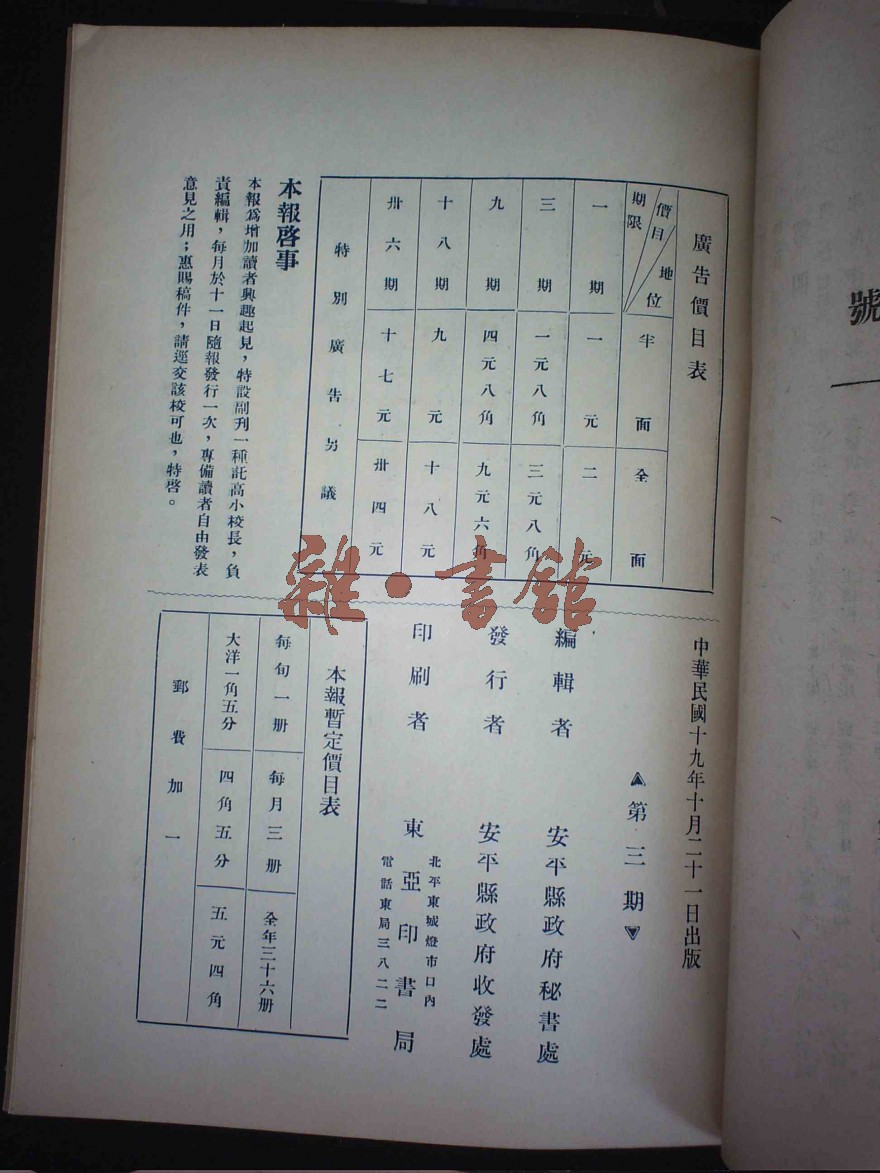 廣告價目表
價目 地位 期限
半面
全面
一期 一元 二元
三期 一元八角 三元八角
九期 四元八角 九元六角
十八期 九元 十八元
卅六期 十七元 卅四元
特別廣告另議
本報啓事
本報爲增加讀者興趣起見，特設副刊一種託高小校長，負
責編輯，每月於十一日隨報發行一次，專備讀者自由發表
意見之用；惠賜稿件，請逕交該校可也，特啓。
中華民國十九年十月二十一日出版
第三期
編輯者 安平縣政府秘書處
發行者 安平縣政府收發處
印刷者 東亞印書局
北平東城燈市口內
電話東局三八二二
本報暫定價目表
每旬一册 每月三册 全年三十六册
大洋一角五分 四角五分 五元四角
郵費加一
號
雜·書館